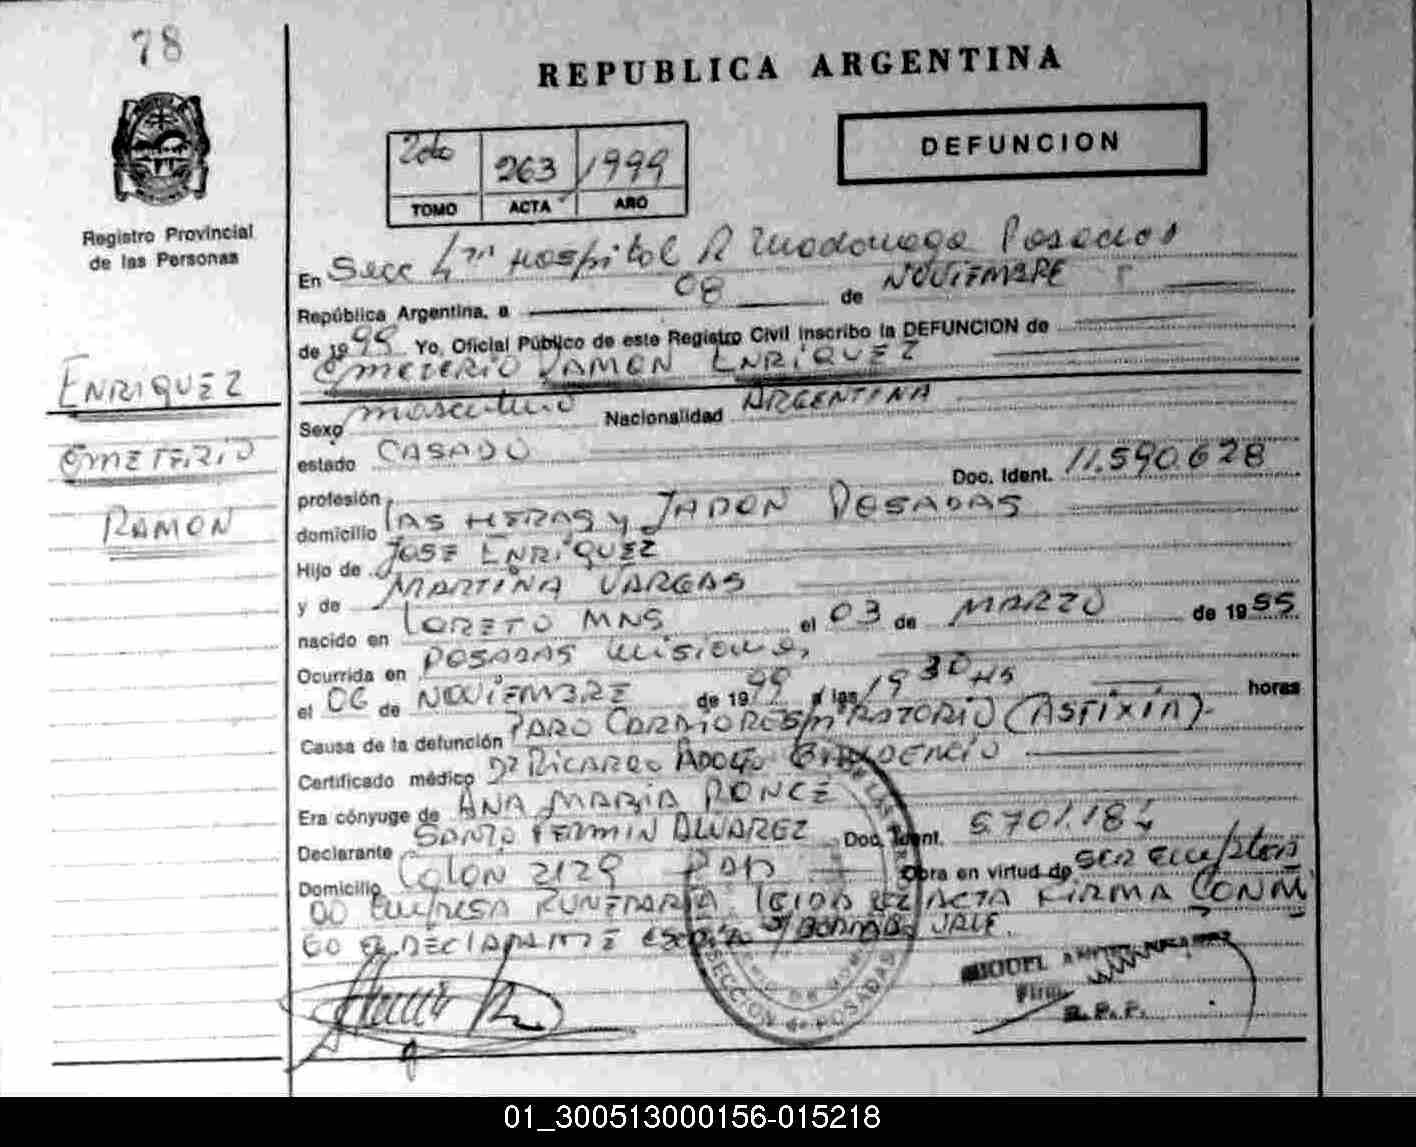 78
REPUBLICA ARGENTINA
DEFUNCION
2do 263 1999
TOMO ACTA AÑO
Registro Provincial
de las Personas
ENRIQUEZ
EMETERIO
RAMON
En Secc 1ra Hospital R Madariaga Posadas
República Argentina, a 08 de NOVIEMBRE
de 1999 Yo, Oficial Público de este Registro Civil inscribo la DEFUNCION de
EMETERIO RAMON ENRIQUEZ
Sexo masculino Nacionalidad ARGENTINA
estado CASADO Doc. Ident. 11.590.628
profesión
domicilio LAS HERAS y JAPON POSADAS
Hijo de JOSE ENRIQUEZ
y de MARTINA VARGAS
nacido en LORETO MNS el 03 de MARZO de 1955
Ocurrida en POSADAS Misiones
el 06 de NOVIEMBRE de 1999 a las 19 30 HS horas
Causa de la defunción PARO CARDIORESPIRATORIO (ASFIXIA)-
Certificado médico Dr RICARDO ADOLFO
Era cónyuge de ANA MARIA PONCE
Declarante SANTO FERMIN ALVAREZ Doc. Ident. 5.701.184
Domicilio COLON 2129 Obra en virtud de ser emplea
DO EMPRESA FUNERARIA LEIDA EL ACTA FIRMA CONMI
GO EL DECLARANTE VALE.
SECCION de POSADAS
MIGUEL
R.P.P.
01_300513000156-015218